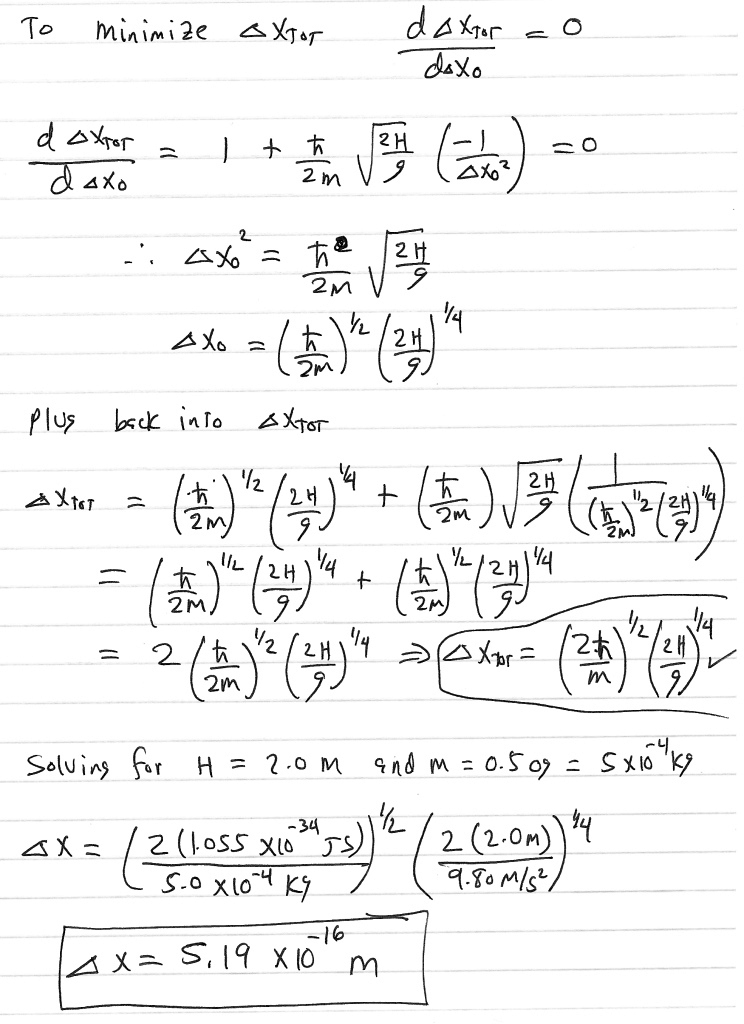 To minimize Δx_TOT   dΔx_TOT/dΔx₀ = 0
dΔx_TOT/dΔx₀ = 1 + ħ/2m √(2H/g) (-1/Δx₀²) = 0
∴ Δx₀² = ħ/2m √(2H/g)
Δx₀ = (ħ/2m)^1/2 (2H/g)^1/4
Plug back into Δx_TOT
Δx_TOT = (ħ/2m)^1/2 (2H/g)^1/4 + (ħ/2m) √(2H/g) (1/((ħ/2m)^1/2 (2H/g)^1/4))
= (ħ/2m)^1/2 (2H/g)^1/4 + (ħ/2m)^1/2 (2H/g)^1/4
= 2 (ħ/2m)^1/2 (2H/g)^1/4 ⇒ Δx_TOT = (2ħ/m)^1/2 (2H/g)^1/4 ✓
Solving for H = 2.0 m and m = 0.50g = 5×10^-4 kg
Δx = (2(1.055 ×10^-34 Js)/5.0 ×10^-4 kg)^1/2 (2(2.0m)/9.80 m/s²)^1/4
Δx = 5.19 ×10^-16 m